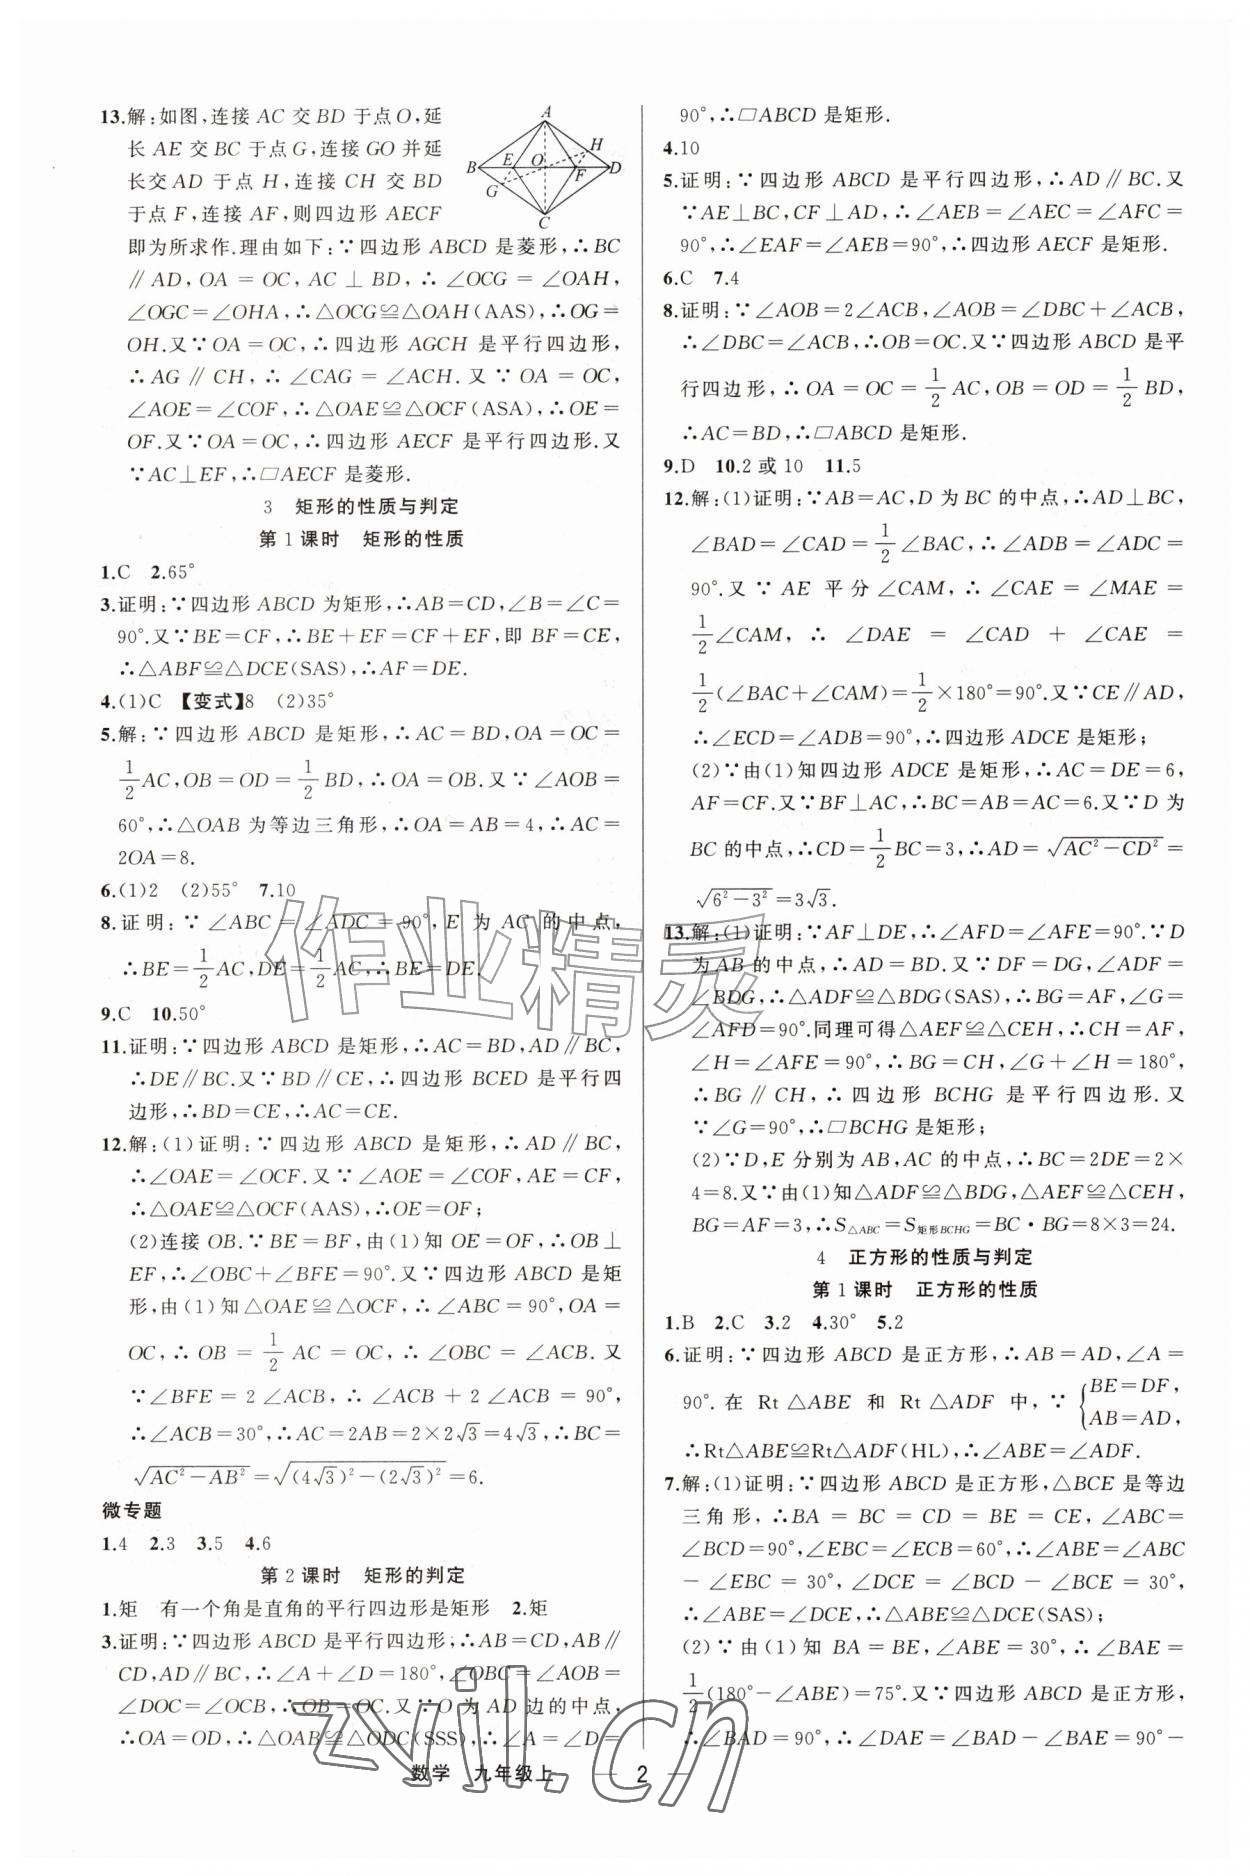 13.解:如图,连接 AC 交 BD 于点 O,延
长 AE 交 BC 于点 G,连接 GO 并延
长交 AD 于点 H,连接 CH 交 BD
于点 F,连接 AF,则四边形 AECF
即为所求作.理由如下:∵四边形 ABCD 是菱形,∴BC
∥AD,OA=OC,AC⊥BD,∴∠OCG=∠OAH,
∠OGC=∠OHA,∴△OCG≌△OAH(AAS),∴OG=
OH.又∵OA=OC,∴四边形 AGCH 是平行四边形,
∴AG∥CH,∴∠CAG=∠ACH.又∵OA=OC,
∠AOE=∠COF,∴△OAE≌△OCF(ASA),∴OE=
OF.又∵OA=OC,∴四边形 AECF 是平行四边形.又
∵AC⊥EF,∴□AECF 是菱形.
A
B E O H D
G F
C
3 矩形的性质与判定
第1课时 矩形的性质
1.C 2.65°
3.证明:∵四边形 ABCD 为矩形,∴AB=CD,∠B=∠C=
90°.又∵BE=CF,∴BE+EF=CF+EF,即 BF=CE,
∴△ABF≌△DCE(SAS),∴AF=DE.
4.(1)C 【变式】8 (2)35°
5.解:∵四边形 ABCD 是矩形,∴AC=BD,OA=OC=
1/2AC,OB=OD=1/2BD,∴OA=OB.又∵∠AOB=
60°,∴△OAB 为等边三角形,∴OA=AB=4,∴AC=
2OA=8.
6.(1)2 (2)55° 7.10
8.证明:∵∠ABC=∠ADC=90°,E 为 AC 的中点,
∴BE=1/2AC,DE=1/2AC,∴BE=DE.
9.C 10.50°
11.证明:∵四边形 ABCD 是矩形,∴AC=BD,AD∥BC,
∴DE∥BC.又∵BD∥CE,∴四边形 BCED 是平行四
边形,∴BD=CE,∴AC=CE.
12.解:(1)证明:∵四边形 ABCD 是矩形,∴AD∥BC,
∴∠OAE=∠OCF.又∵∠AOE=∠COF,AE=CF,
∴△OAE≌△OCF(AAS),∴OE=OF;
(2)连接 OB.∵BE=BF,由(1)知 OE=OF,∴OB⊥
EF,∴∠OBC+∠BFE=90°.又∵四边形 ABCD 是矩
形,由(1)知△OAE≌△OCF,∴∠ABC=90°,OA=
OC,∴OB=1/2AC=OC,∴∠OBC=∠ACB.又
∵∠BFE=2∠ACB,∴∠ACB+2∠ACB=90°,
∴∠ACB=30°,∴AC=2AB=2×2√3=4√3,∴BC=
√(AC²-AB²)=√((4√3)²-(2√3)²)=6.
微专题
1.4 2.3 3.5 4.6
第2课时 矩形的判定
1.矩 有一个角是直角的平行四边形是矩形 2.矩
3.证明:∵四边形 ABCD 是平行四边形,∴AB=CD,AB∥
CD,AD∥BC,∴∠A+∠D=180°,∠OBC=∠AOB=
∠DOC=∠OCB,∴OB=OC.又∵O 为 AD 边的中点,
∴OA=OD,∴△OAB≌△ODC(SSS),∴∠A=∠D=
90°,∴□ABCD 是矩形.
4.10
5.证明:∵四边形 ABCD 是平行四边形,∴AD∥BC.又
∵AE⊥BC,CF⊥AD,∴∠AEB=∠AEC=∠AFC=
90°,∴∠EAF=∠AEB=90°,∴四边形 AECF 是矩形.
6.C 7.4
8.证明:∵∠AOB=2∠ACB,∠AOB=∠DBC+∠ACB,
∴∠DBC=∠ACB,∴OB=OC.又∵四边形 ABCD 是平
行四边形,∴OA=OC=1/2AC,OB=OD=1/2BD,
∴AC=BD,∴□ABCD 是矩形.
9.D 10.2 或 10 11.5
12.解:(1)证明:∵AB=AC,D 为 BC 的中点,∴AD⊥BC,
∠BAD=∠CAD=1/2∠BAC,∴∠ADB=∠ADC=
90°.又∵AE 平分∠CAM,∴∠CAE=∠MAE=
1/2∠CAM,∴∠DAE=∠CAD+∠CAE=
1/2(∠BAC+∠CAM)=1/2×180°=90°.又∵CE∥AD,
∴∠ECD=∠ADB=90°,∴四边形 ADCE 是矩形;
(2)∵由(1)知四边形 ADCE 是矩形,∴AC=DE=6,
AF=CF.又∵BF⊥AC,∴BC=AB=AC=6.又∵D 为
BC 的中点,∴CD=1/2BC=3,∴AD=√(AC²-CD²)=
√(6²-3²)=3√3.
13.解:(1)证明:∵AF⊥DE,∴∠AFD=∠AFE=90°.∵D
为 AB 的中点,∴AD=BD.又∵DF=DG,∠ADF=
∠BDG,∴△ADF≌△BDG(SAS),∴BG=AF,∠G=
∠AFD=90°.同理可得△AEF≌△CEH,∴CH=AF,
∠H=∠AFE=90°,∴BG=CH,∠G+∠H=180°,
∴BG∥CH,∴四边形 BCHG 是平行四边形.又
∵∠G=90°,∴□BCHG 是矩形;
(2)∵D,E 分别为 AB,AC 的中点,∴BC=2DE=2×
4=8.又∵由(1)知△ADF≌△BDG,△AEF≌△CEH,
BG=AF=3,∴S△ABC=S矩形BCHG=BC·BG=8×3=24.
4 正方形的性质与判定
第1课时 正方形的性质
1.B 2.C 3.2 4.30° 5.2
6.证明:∵四边形 ABCD 是正方形,∴AB=AD,∠A=
90°.在 Rt△ABE 和 Rt△ADF 中,∵{BE=DF,
AB=AD,
∴Rt△ABE≌Rt△ADF(HL),∴∠ABE=∠ADF.
7.解:(1)证明:∵四边形 ABCD 是正方形,△BCE 是等边
三角形,∴BA=BC=CD=BE=CE,∠ABC=
∠BCD=90°,∠EBC=∠ECB=60°,∴∠ABE=∠ABC
-∠EBC=30°,∠DCE=∠BCD-∠BCE=30°,
∴∠ABE=∠DCE,∴△ABE≌△DCE(SAS);
(2)∵由(1)知 BA=BE,∠ABE=30°,∴∠BAE=
1/2(180°-∠ABE)=75°.又∵四边形 ABCD 是正方形,
∴∠BAD=90°,∴∠DAE=∠BAD-∠BAE=90°-
数学 九年级上 — 2 —
作业精灵
zyjl.cn